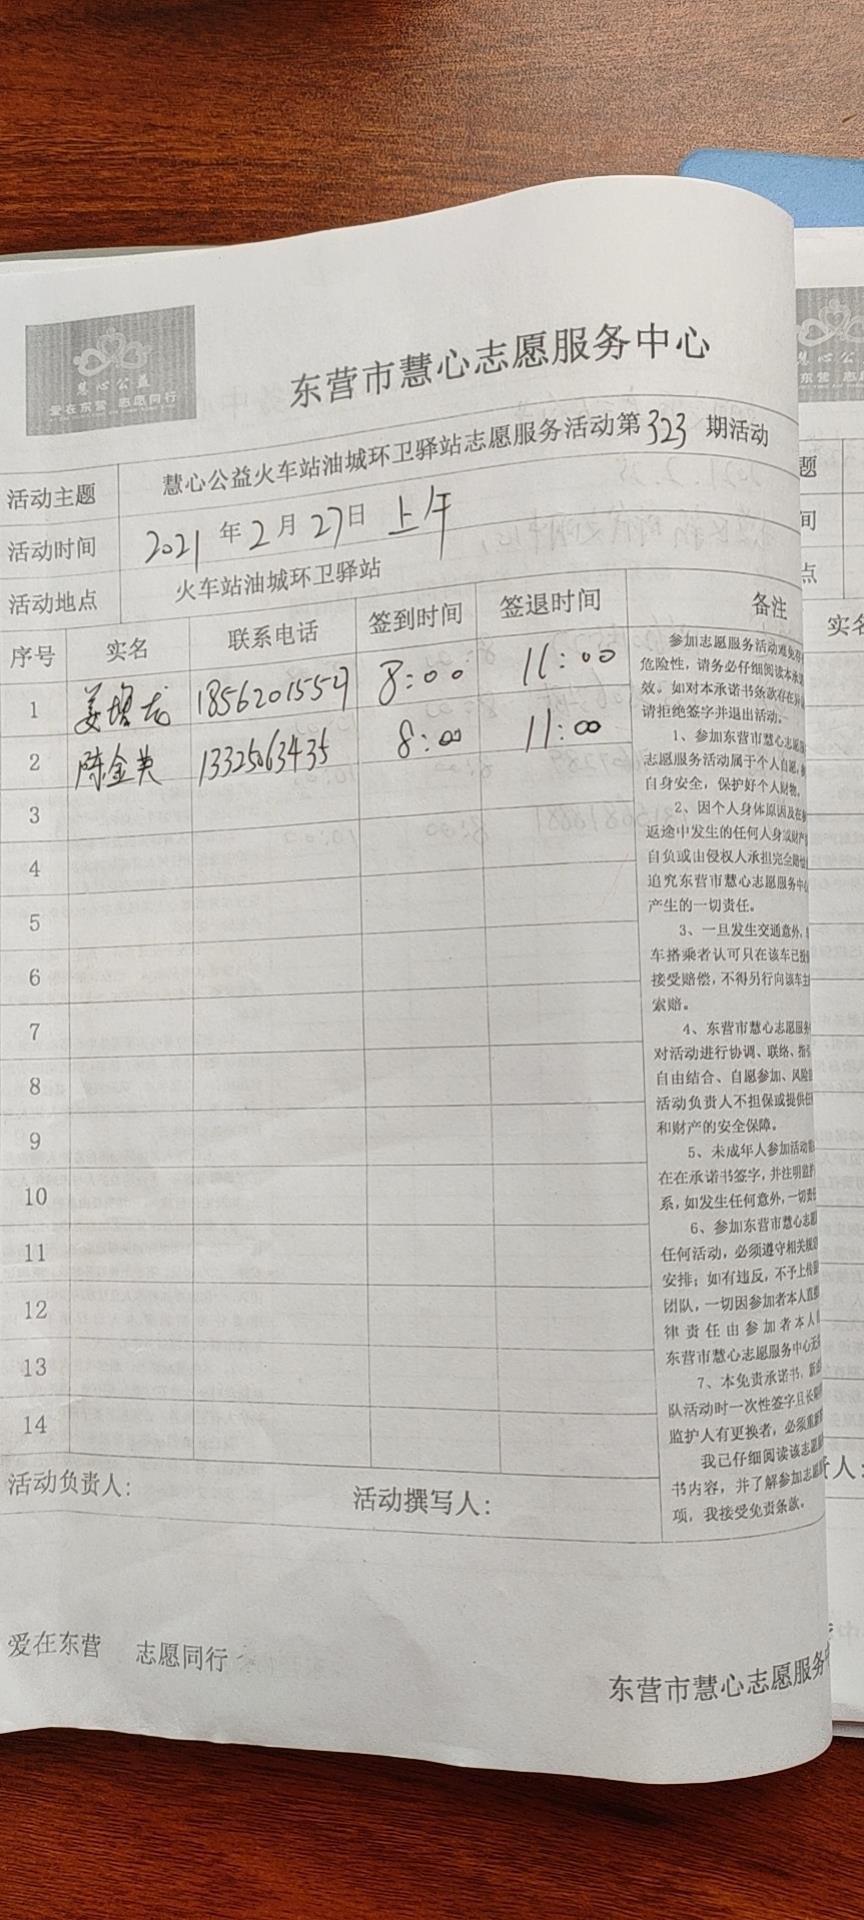 慧心公益
爱在东营 志愿同行
东营市慧心志愿服务中心
活动主题 慧心公益火车站油城环卫驿站志愿服务活动第323期活动
活动时间 2021年2月27日 上午
活动地点 火车站油城环卫驿站
序号 实名 联系电话 签到时间 签退时间 备注
1 姜增龙 18562015527 8:00 11:00
2 陈金英 13325063435 8:00 11:00
3
4
5
6
7
8
9
10
11
12
13
14
参加志愿服务活动难免存
危险性，请务必仔细阅读本承
效。如对本承诺书条款存在异
请拒绝签字并退出活动。
1、参加东营市慧心志愿
志愿服务活动属于个人自愿，
自身安全，保护好个人财物。
2、因个人身体原因及在
返途中发生的任何人身或财产
自负或由侵权人承担完全赔
追究东营市慧心志愿服务中
产生的一切责任。
3、一旦发生交通意外，
车搭乘者认可只在该车已投
接受赔偿，不得另行向该车主
索赔。
4、东营市慧心志愿服务
对活动进行协调、联络、指
自由结合、自愿参加、风险
活动负责人不担保或提供任
和财产的安全保障。
5、未成年人参加活动
在在承诺书签字，并注明监
系，如发生任何意外，一切责
6、参加东营市慧心志愿
任何活动，必须遵守相关规
安排；如有违反，不予上传
团队，一切因参加者本人直
律责任由参加者本人
东营市慧心志愿服务中心无
7、本免责承诺书，新
队活动时一次性签字且长
监护人有更换者，必须重新
我已仔细阅读该志愿
书内容，并了解参加志愿
项，我接受免责条款。
活动负责人： 活动撰写人：
爱在东营 志愿同行
东营市慧心志愿服务
题
间
点
实名
人：